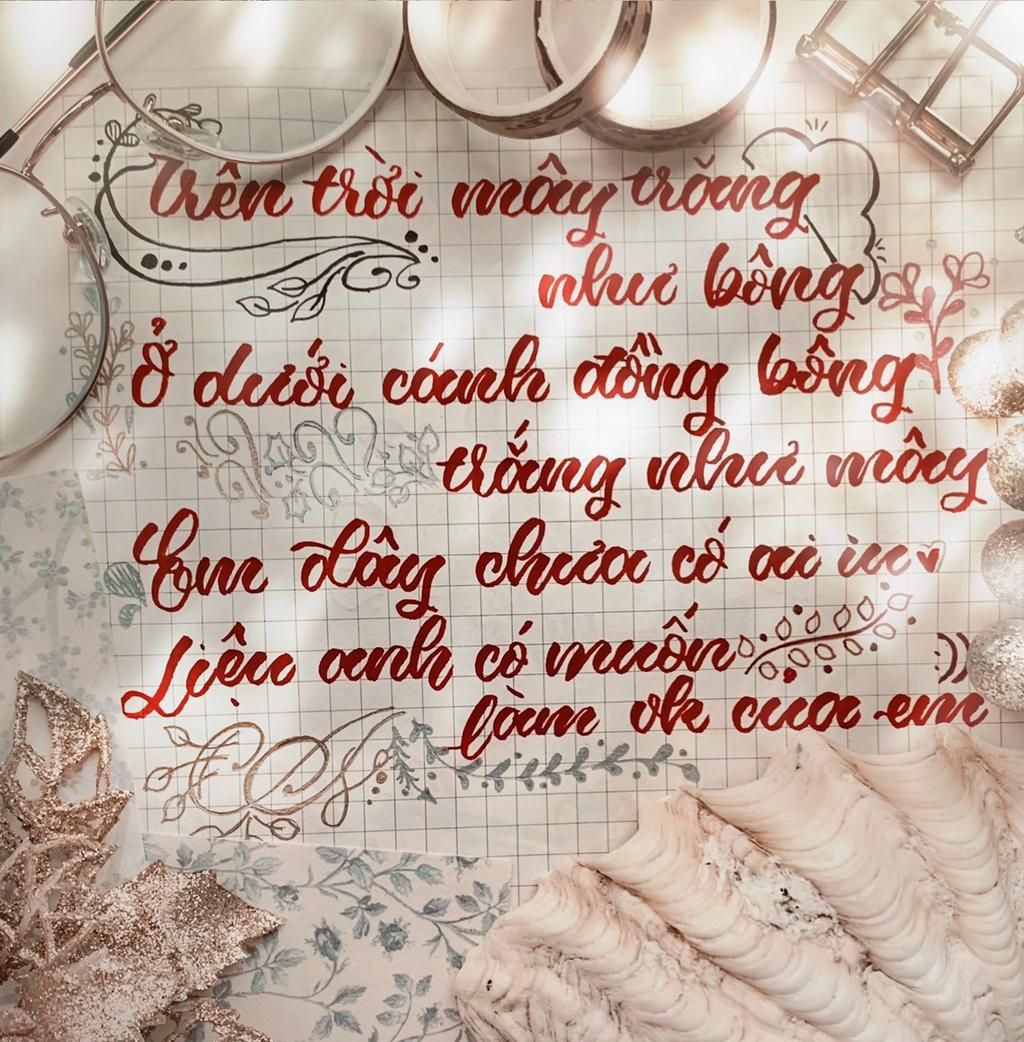 Trên trời mây trắng
như bông
Ở dưới cánh đồng bông
trắng như mây
Em đây chưa có ai iu
Liệu anh có muốn
làm vk của em